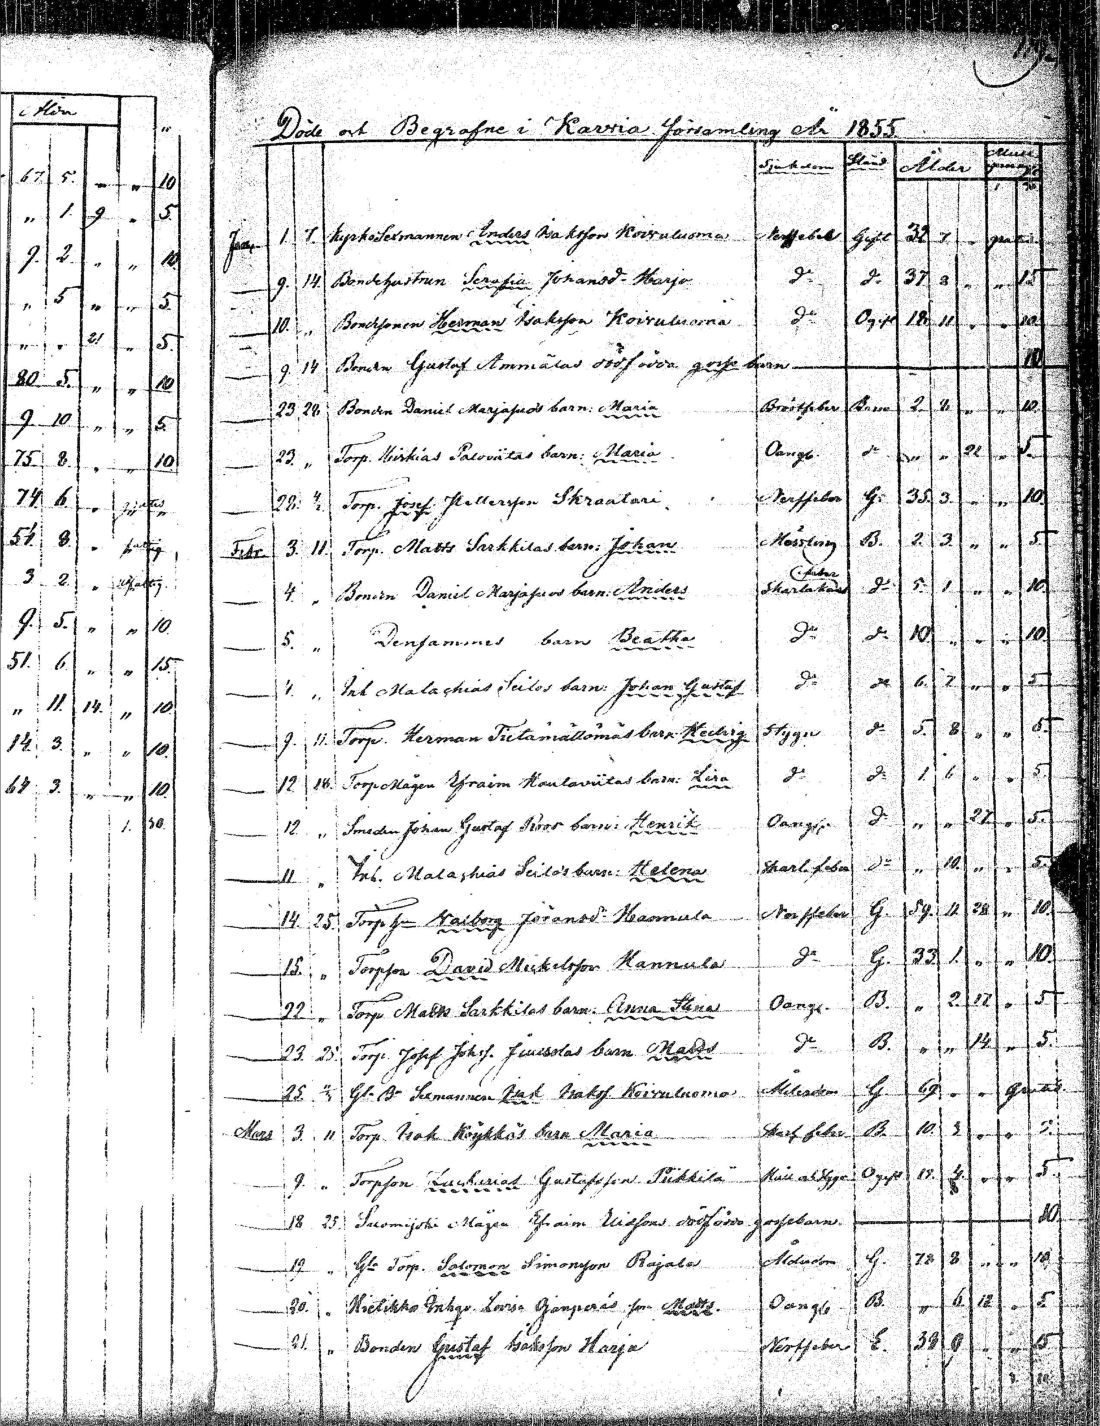 Åldr
"
67. 5. " " 10
" 1. 9 " 5.
9. 2. " " 10
" 5 " " 5.
" " 21 " 5.
80 5. " " 10
9 10 " " 5.
75. 8. " " 10
74 6 "
54. 8. "
3 2 "
9. 5. " " 10.
51. 6. " " 15
" 11. 14. " 10.
14. 3. " " 10.
64 3. " " 10.
1. 30.
Döde och Begrafne i Karvia Församling År 1855.
Sjukdom Stånd Ålder
Jan. 1. 7. Anders Isaksson Koivuluoma Nerffeber Gift 7 " gratis
9. 14. Bondehustrun Serafia Johansd. Harjo do d. 37. 8 " " 15
10. " Bondesonen Herman Isaksson Koivuluoma do Ogift 18 11 " " 10.
9 14 Bonden Gustaf Ammälas dödfödda gosse barn 10
23 28 Bonden Daniel Marjasuos barn: Maria Bröstfeber Barn 2 8 " " 10.
23. " Torp. Paloviitas barn: Maria Oangif. do " " 22 " 5.
28. Torp. Josef Skraatari Nerffeber G. 35. 3. " " 10.
Febr. 3. 11. Torp. Matts Sarkkilas barn: Johan Messling B. 2 3 " " 5.
4. " Bonden Daniel Marjasuos barn: Anders Skarlakans feber do 5. 1 " " 10.
5. " Densammes barn Beatha do d. 10. " " " 10.
4. " Inh. Malachias Seilos barn: Johan Gustaf do do 6. 7 " " 5
9. 11. Torp. Herman Tietämättömäs barn Hedvig Stygn do 5. 8 " " 5.
12 18. Torp. Mågen Efraim Hautaviitas barn: Lisa do do 1. 6 " " 5.
12 " Smeden Johan Gustaf Roos barn: Henrik Oangif. d. " " 27 " 5.
11 " Inh. Malachias Seilos barn: Helena Skarl. feber do " 10. " " 5.
14. 25. Torp. Valborg Göransd. Haomula Nerffeber G. 59. 11 28 " 10.
15. " Torpson David Mickelsson Hannula do G. 33 1. " " 10.
22 " Torp. Matts Sarkkilas barn: Anna Stina Oangif. B. " 2 12 " 5
23. 25. Torp. Josef Johs. barn Matts do B. " " 14 " 5.
25. Isak Isakss. Koivuluoma Ålderdom G. 69 " " Gratis
Mars 3. 11 Torp. Isak Köykkäs barn Maria Skarl. feber B. 10. 3 " "
9. " Torpson Zacharias Gustafsson Pikkilä Ogift 18. " " 5.
18 25. Suomijoki Mågen Efraim Eliassons dödfödda gossebarn. 10
19 " Gl. Torp. Salomon Simonsson Rajala Ålderdom G. 78 8 " " 10.
20. " Hietikko Inhys. Lovisa son Matts. Oangif. B. " 6 12 " 5.
21. " Bonden Gustaf Isaksson Harja Nerffeber E. 38 9 " " 15